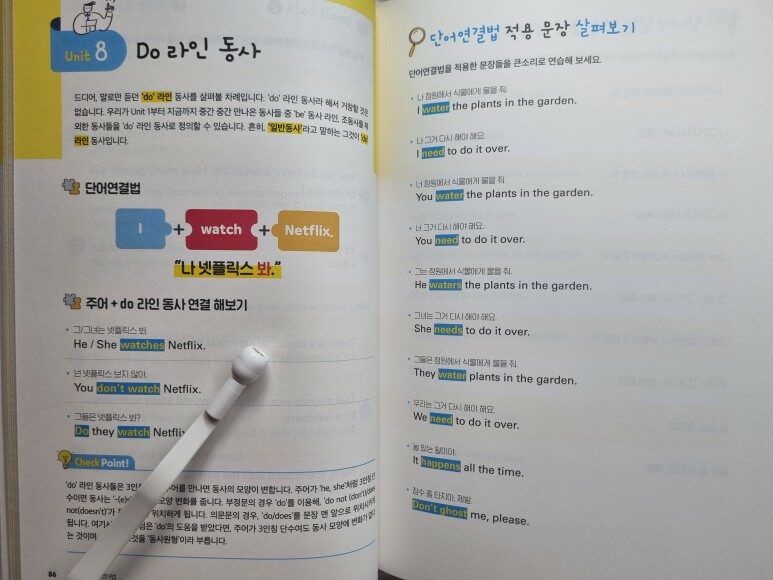 Unit 8 Do 라인 동사
드디어, 말로만 듣던 'do' 라인 동사를 살펴볼 차례입니다. 'do' 라인 동사라 해서 거창할 것은
없습니다. 우리가 Unit 1부터 지금까지 중간 중간 만나온 동사들 중 'be' 동사 라인, 조동사를 제
외한 동사들을 'do' 라인 동사로 정의할 수 있습니다. 흔히, '일반동사'라고 말하는 그것이 'do'
라인 동사입니다.
단어연결법
I + watch + Netflix.
"나 넷플릭스 봐."
주어 + do 라인 동사 연결 해보기
그/그녀는 넷플릭스 봐.
He / She watches Netflix.
넌 넷플릭스 보지 않아.
You don't watch Netflix.
그들은 넷플릭스 봐?
Do they watch Netflix
Check Point!
'do' 라인 동사들은 3인칭 주어를 만나면 동사의 모양이 변합니다. 주어가 'he, she'처럼 3인칭 단
수이면 동사는 '-(e)s' 모양 변화를 줍니다. 부정문의 경우 'do'를 이용해, 'do not (don't)/does
not(doesn't)'가 위치하게 됩니다. 의문문의 경우, 'do/does'를 문장 맨 앞으로 위치시키게
됩니다. 여기서 점은 'do'의 도움을 받았다면, 주어가 3인칭 단수여도 동사 모양에 변화가 없다
는 것이며 것을 '동사원형'이라 부릅니다.
86
단어연결법 적용 문장 살펴보기
단어연결법을 적용한 문장들을 큰소리로 연습해 보세요.
나 정원에서 식물에게 물을 줘.
I water the plants in the garden.
나 그거 다시 해야 해요.
I need to do it over.
너 정원에서 식물에게 물을 줘.
You water the plants in the garden.
너 그거 다시 해야 해요.
You need to do it over.
그는 정원에서 식물에게 물을 줘.
He waters the plants in the garden.
그녀는 그거 다시 해야 해요.
She needs to do it over.
그들은 정원에서 식물에게 물을 줘.
They water plants in the garden.
우리는 그거 다시 해야 해요.
We need to do it over.
늘 있는 일이야.
It happens all the time.
잠수 좀 타지마, 제발.
Don't ghost me, please.